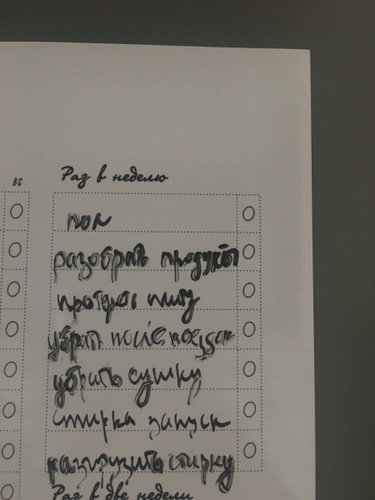 Раз в неделю
вс
пол
разобрать продукты
протереть плиту
убрать после
убрать сушку
стирка запуск
разгрузить стирку
Раз в две недели